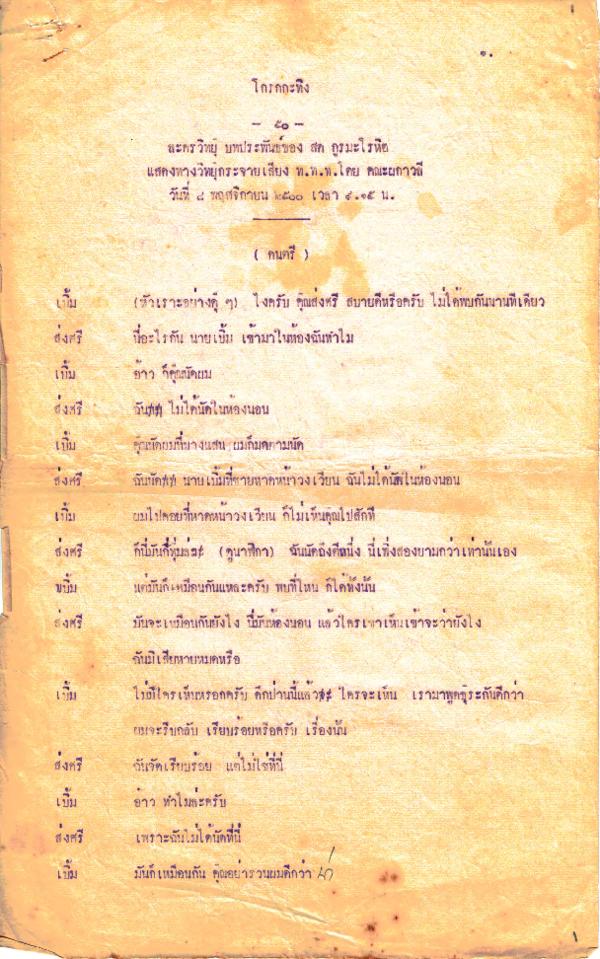 ๑.
โกรกกะทิง
- ๕๐ -
ละครวิทยุ บทประพันธ์ของ สด กูรมะโรหิต
แสดงทางวิทยุกระจายเสียง ท.ท.ท.โดย คณะผกาวลี
วันที่ ๘ พฤศจิกายน ๒๕๐๐ เวลา ๙.๑๕ น.
( ดนตรี )
เบิ้ม (หัวเราะอย่างดุ ๆ) ไงครับ คุณส่งศรี สบายดีหรือครับ ไม่ได้พบกันนานทีเดียว
ส่งศรี นี่อะไรกัน นายเบิ้ม เข้ามาในห้องฉันทำไม
เบิ้ม อ้าว ก็คุณนัดผม
ส่งศรี ฉัน ไม่ได้นัดในห้องนอน
เบิ้ม คุณนัดผมที่บางแสน ผมก็มาตามนัด
ส่งศรี ฉันนัด นายเบิ้มที่ชายหาดหน้าวงเวียน ฉันไม่ได้นัดในห้องนอน
เบิ้ม ผมไปคอยที่หาดหน้าวงเวียน ก็ไม่เห็นคุณไปสักที
ส่งศรี ก็นี่มันกี่ทุ่มล่ะ (ดูนาฬิกา) ฉันนัดถึงตีหนึ่ง นี่เพิ่งสองยามกว่าเท่านั้นเอง
ขบิ้ม แต่มันก็เหมือนกันแหละครับ พบที่ไหน ก็ได้ทั้งนั้น
ส่งศรี มันจะเหมือนกันยังไง นี่มันห้องนอน แล้วใครเขาเห็นเข้าจะว่ายังไง
ฉันมิเสียหายหมดหรือ
เบิ้ม ไม่มีใครเห็นหรอกครับ ดึกป่านนี้แล้ว ใครจะเห็น เรามาพูดธุระกันดีกว่า
ผมจะรีบกลับ เรียบร้อยหรือครับ เรื่องนั้น
ส่งศรี ฉันจัดเรียบร้อย แต่ไม่ใช่ที่นี่
เบิ้ม อ้าว ทำไมล่ะครับ
ส่งศรี เพราะฉันไม่ได้นัดที่นี่
เบิ้ม มันก็เหมือนกัน คุณอย่ากวนผมดีกว่า น่ำ